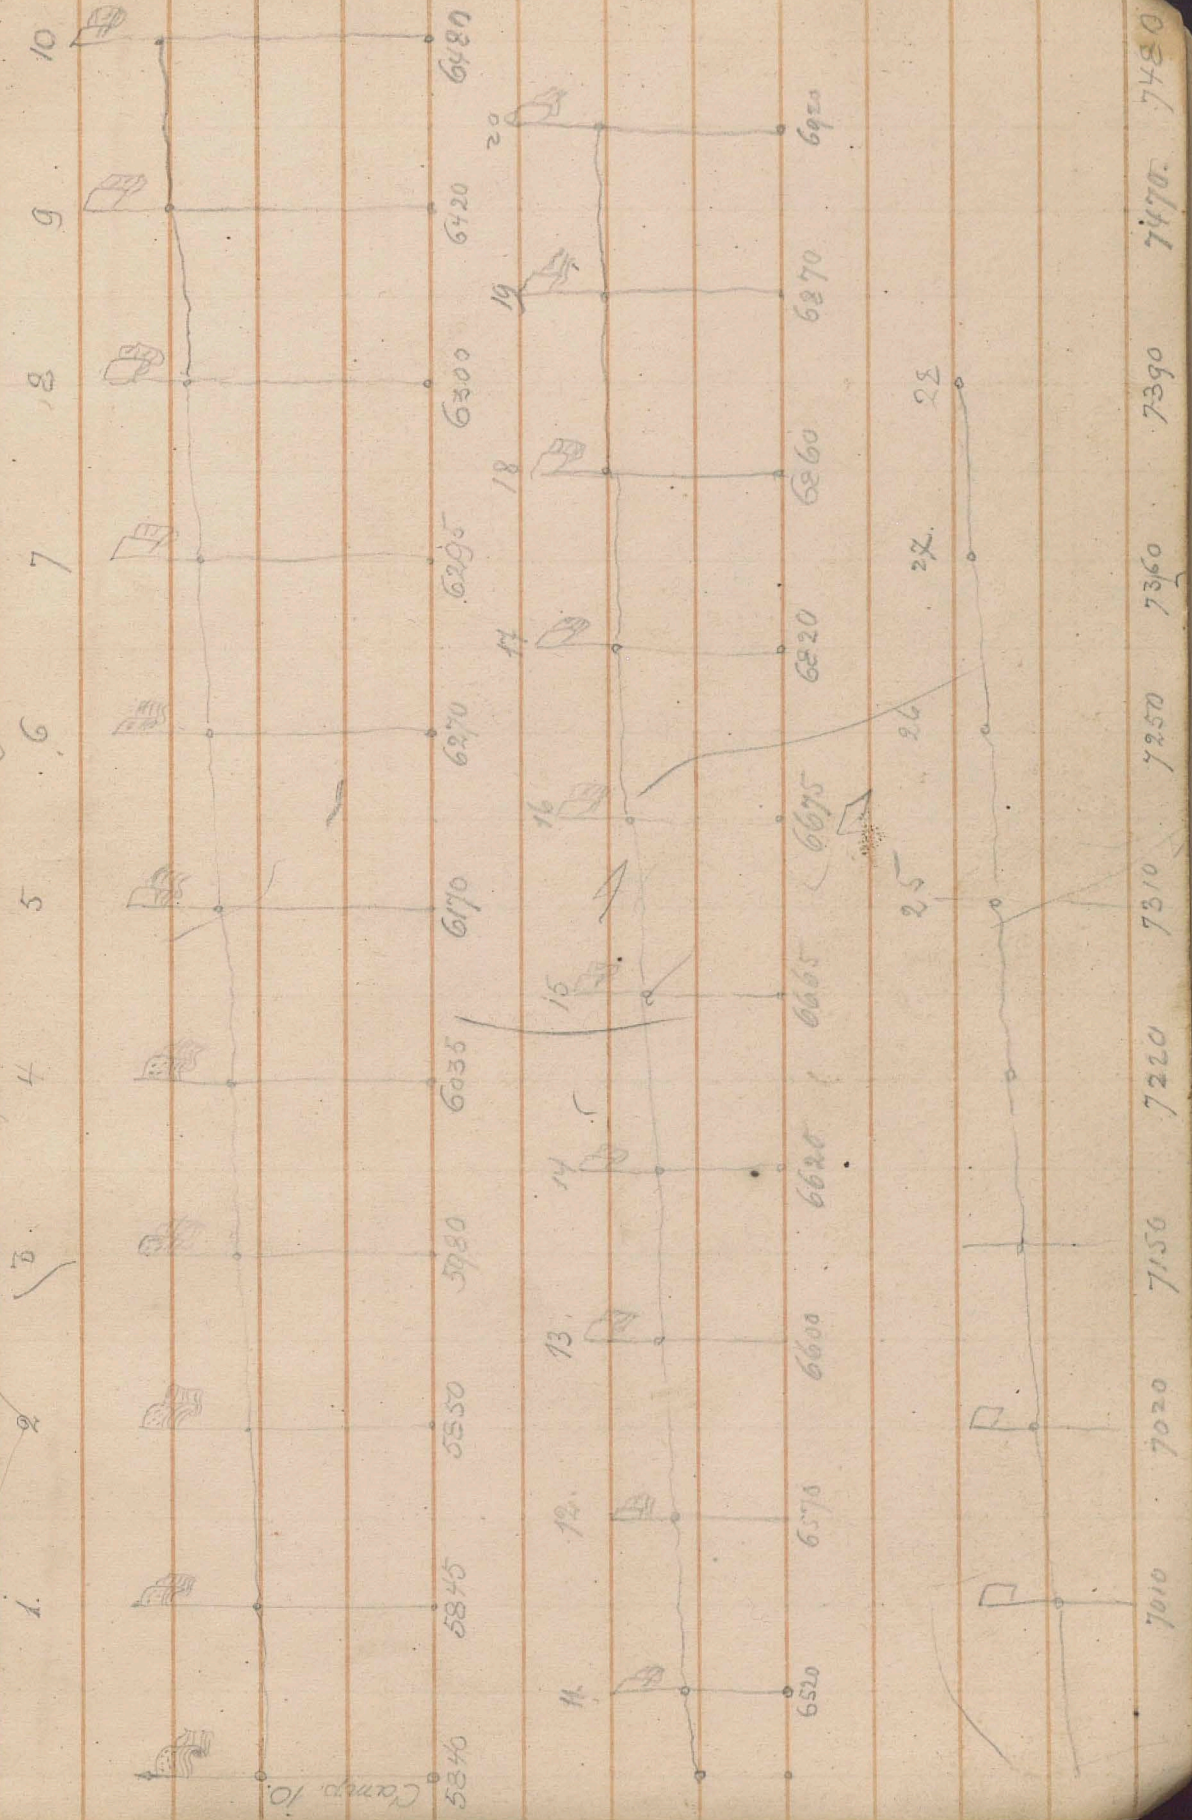 1. 2 3 4 5 6 7 8 9 10
Camp. 10.
5840 5845 5850 5980 6035 6170 6270 6295 6300 6420 6480
11. 12. 13. 14 15 16 17 18 19 20
6520 6570 6600 6620 6665 6675 6820 6860 6870 6920
25 26 27. 28
7010 7020 7150 7220 7310 7250 7360 7390 7470. 7480